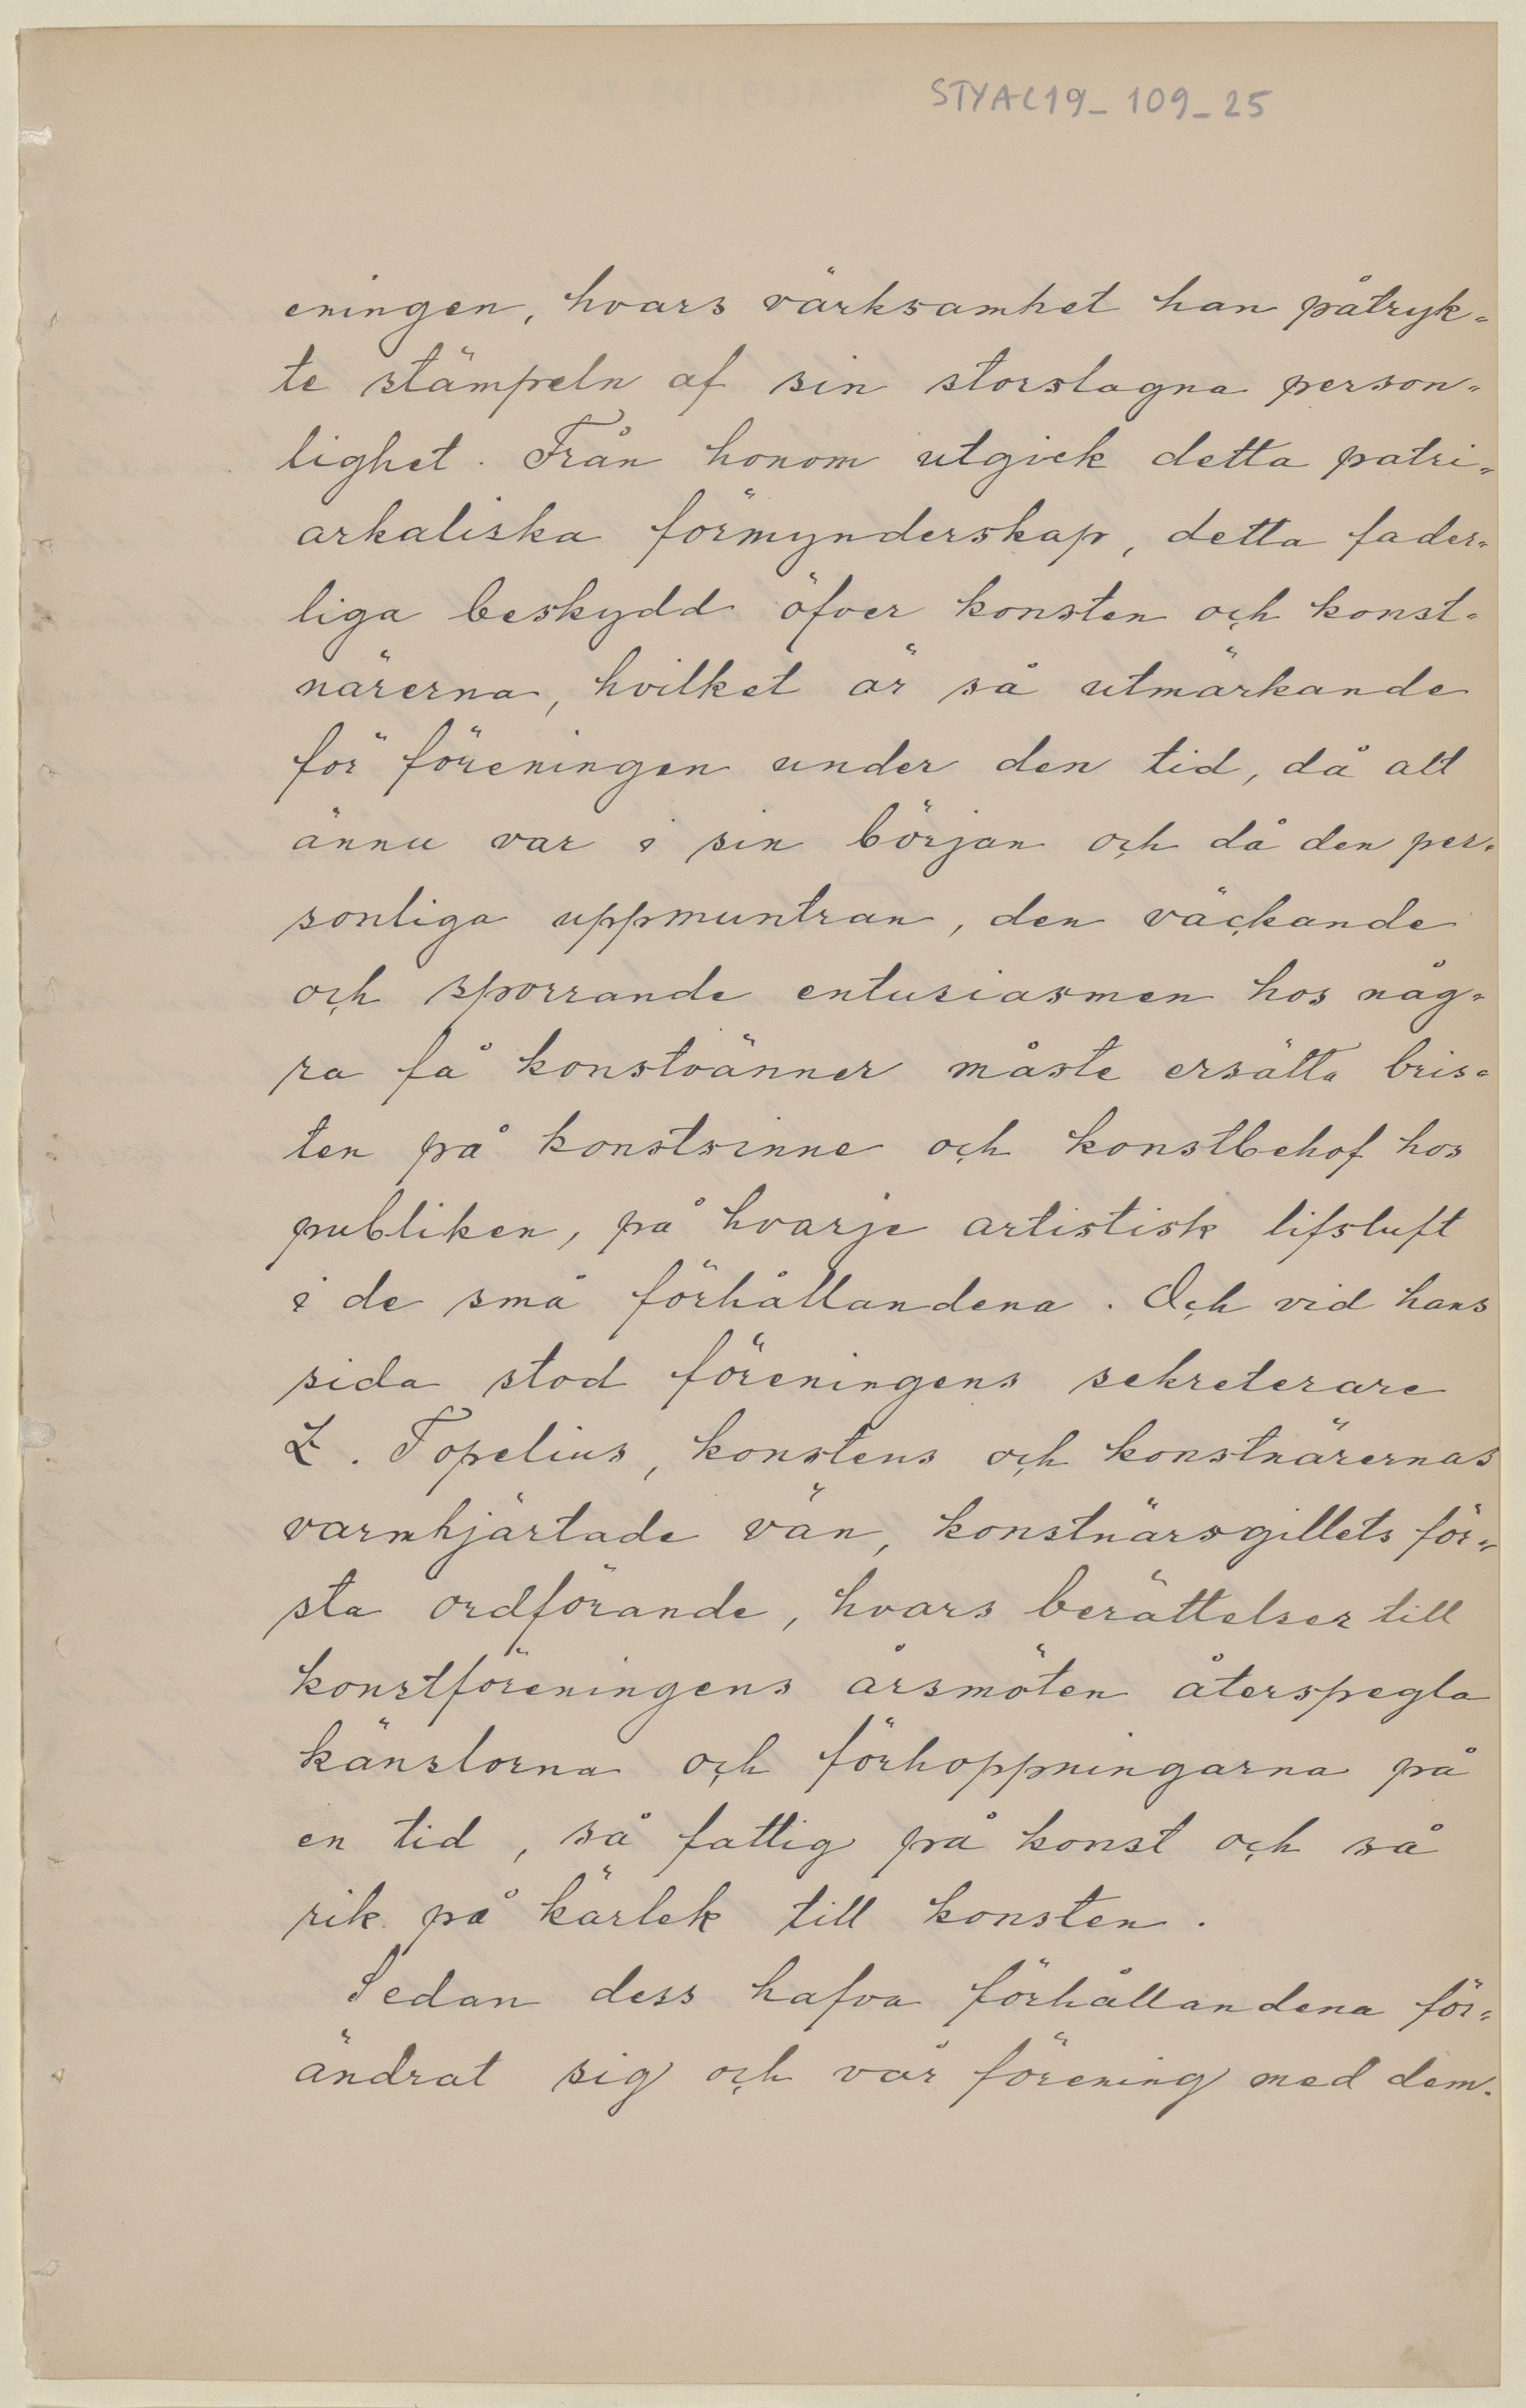 STYAC19_109_25
eningen, hvars värksamhet han påtryk=
te stämpeln af sin storslagna person=
lighet. Från honom utgick detta patri=
arkaliska förmynderskap, detta fader=
liga beskydd öfver konsten och konst=
närerna, hvilket är så utmärkande
för föreningen under den tid, då alt
ännu var i sin början och då den per=
sonliga uppmuntran, den väckande
och sporrande entusiasmen hos någ=
ra få konstvänner måste ersätta bris=
ten på konstsinne och konstbehof hos
publiken, på hvarje artistisk lifsluft
i de små förhållandena. Och vid hans
sida stod föreningens sekreterare
Z. Topelius, konstens och konstnärernas
varmhjärtade vän, konstnärsgillets för=
sta ordförande, hvars berättelser till
konstföreningens årsmöten återspegla
känslorna och förhoppningarna på
en tid, så fattig på konst och så
rik på kärlek till konsten.
Sedan dess hafva förhållandena för=
ändrat sig och vår förening med dem.